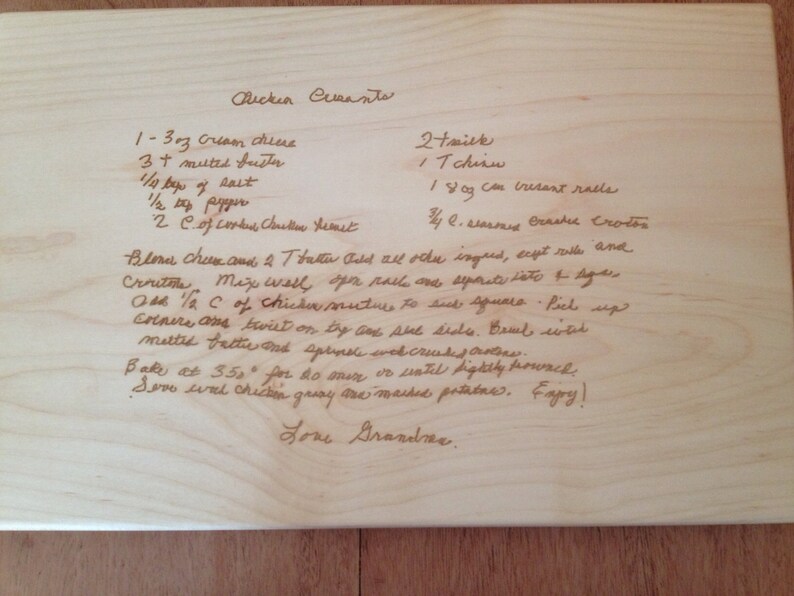 Chicken Cresants
1 - 3 oz cream cheese
3 T melted butter
1/4 tsp of salt
1/2 tsp pepper
2 C. of cooked chicken breast
2 T milk
1 T chives
1 8 oz can cresant rolls
3/4 C. seasoned crushed croutons
Blend cheese and 2 T butter add all other ingred, except rolls and
croutons. Mix well, open rolls and seperate into 4 squares
Add 1/2 C of chicken mixture to each square. Pick up
corners and twist on top and seal sides. Brush with
melted butter and sprinkle with crushed croutons.
Bake at 350° for 20 min or until lightly browned.
Serve with chicken gravy and mashed potatoes. Enjoy!
Love Grandma.